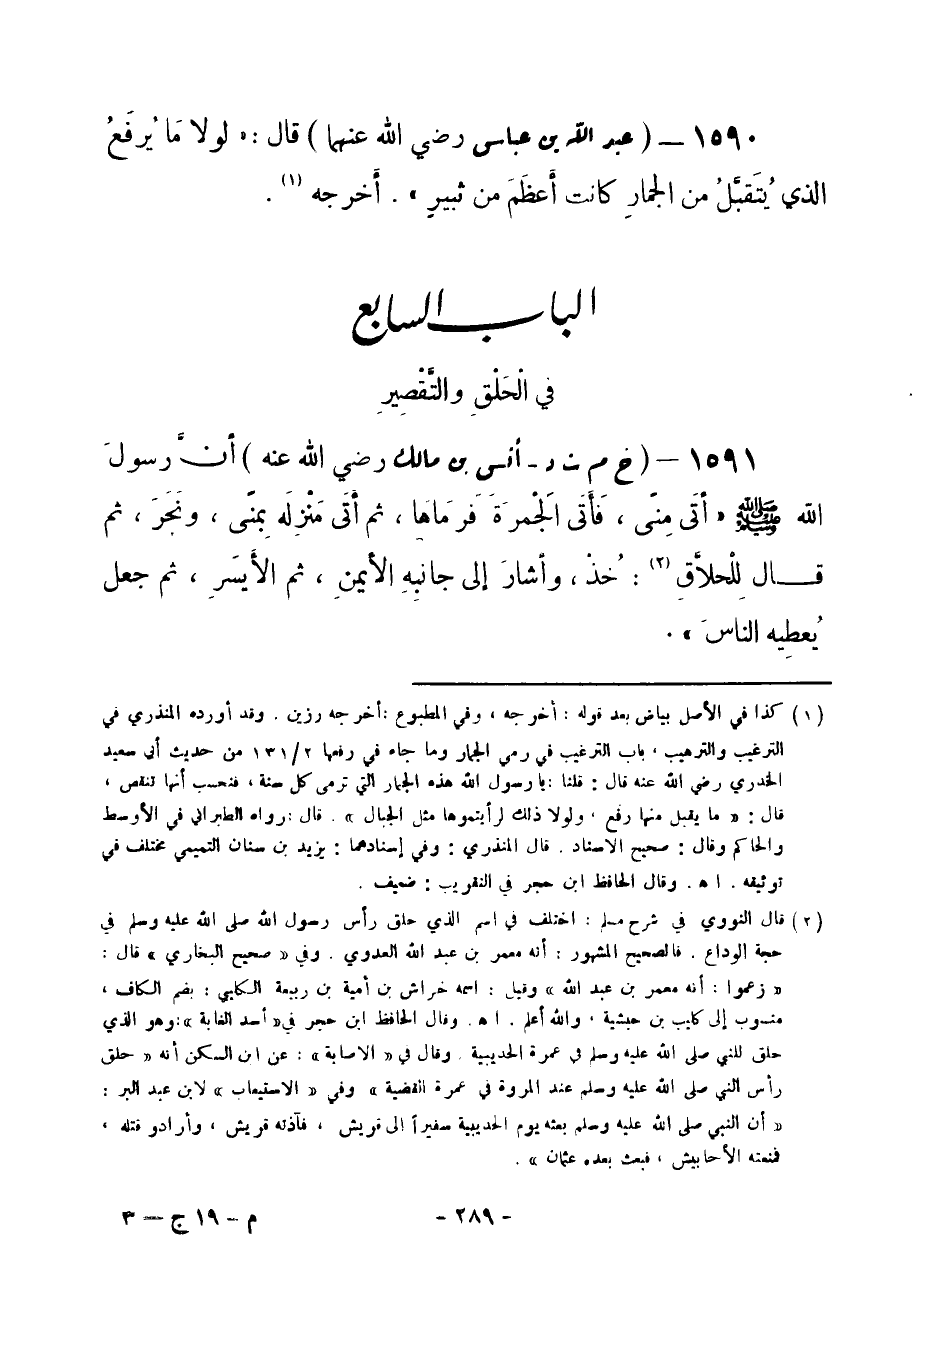 ١٥٩٠ — ( عبد الله بن عباس رضي الله عنهما ) قال : « لولا مَا يُرفَعُ
الذي يُتَقَبَّلُ من الجمارِ كانت أعظَمَ من ثَبيرٍ » . أخرجه (١) .
الباب السابع
في الْحَلْقِ والتَّقْصِيرِ
١٥٩١ — ( خ م ت د - أنس بن مالك رضي الله عنه ) أنَّ رسولَ
الله ﷺ « أتَى مِنًى ، فَأَتَى الْجَمرَةَ فَرمَاهَا ، ثم أتَى مَنْزِلَه بِمنًى ، ونَحَرَ ، ثم
قال لِلْحلاَّقِ (٢) : خُذْ ، وأشارَ إلى جانبِهِ الأيمنِ ، ثم الأيسَرِ ، ثم جعل
يُعطِيه الناسَ » .
(١) كذا في الأصل بياض بعد قوله : أخرجه ، وفي المطبوع : أخرجه رزين . وقد أورده المنذري في
الترغيب والترهيب ، باب الترغيب في رمي الجمار وما جاء في رفعها ١٣١/٢ من حديث أبي سعيد
الخدري رضي الله عنه قال : قلنا : يا رسول الله هذه الجمار التي ترمى كل سنة ، فنحسب أنها تنقص ،
قال : « ما يقبل منها رفع ، ولولا ذلك لرأيتموها مثل الجبال » . قال : رواه الطبراني في الأوسط
والحاكم وقال : صحيح الاسناد . قال المنذري : وفي إسنادهما : يزيد بن سنان التميمي مختلف في
توثيقه . ا ه . وقال الحافظ ابن حجر في التقريب : ضعيف .
(٢) قال النووي في شرح مسلم : اختلف في اسم الذي حلق رأس رسول الله صلى الله عليه وسلم في
حجة الوداع . فالصحيح المشهور : أنه معمر بن عبد الله العدوي . وفي « صحيح البخاري » قال :
« زعموا : أنه معمر بن عبد الله » وقيل : اسمه خراش بن أمية بن ربيعة الكليبي : بضم الكاف ،
منسوب إلى كليب بن حبشية ، والله أعلم . ا ه . وقال الحافظ ابن حجر في « أسد الغابة » : وهو الذي
حلق للنبي صلى الله عليه وسلم في عمرة الحديبية . وقال في « الاصابة » : عن ابن السكن أنه « حلق
رأس النبي صلى الله عليه وسلم عند المروة في عمرة القضية » وفي « الاستيعاب » لابن عبد البر :
« أن النبي صلى الله عليه وسلم بعثه يوم الحديبية سفيراً إلى قريش ، فآذته قريش ، وأرادو قتله ،
فمنعته الأحابيش ، فبعث بعده عثمان » .
- ٢٨٩ -
م - ١٩ ج — ٣